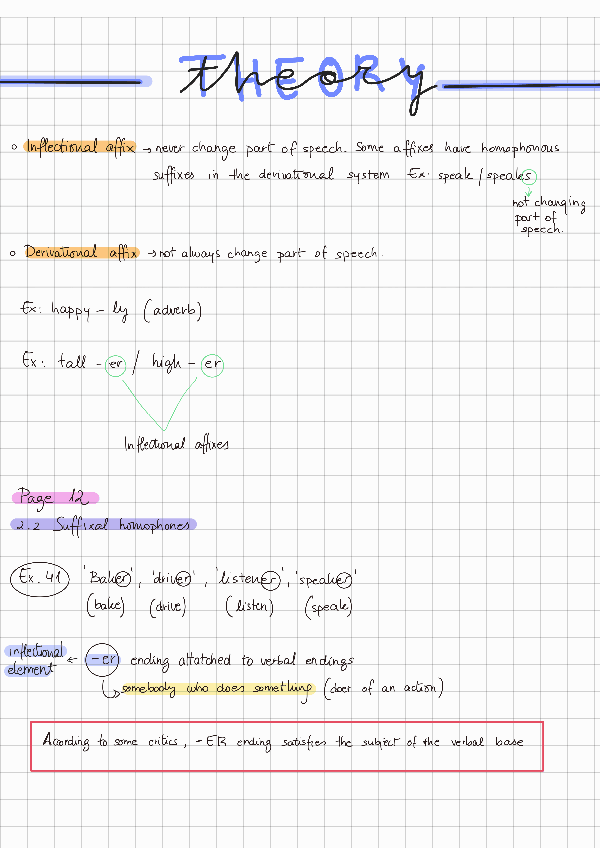 THEORY
theory
• Inflectional affix → never change part of speech. Some affixes have homophonous
suffixes in the derivational system Ex: speak / speaks
not changing
part of
speech.
• Derivational affix → not always change part of speech.
Ex: happy - ly (adverb)
Ex: tall - er / high - er
Inflectional affixes
Page 12
2.2 Suffixal homophones
Ex. 41 'Baker', 'driver', 'listener', 'speaker'
(bake) (drive) (listen) (speak)
inflectional
element ← -er ending attatched to verbal endings
somebody who does something (doer of an action)
According to some critics, -ER ending satisfies the subject of the verbal base